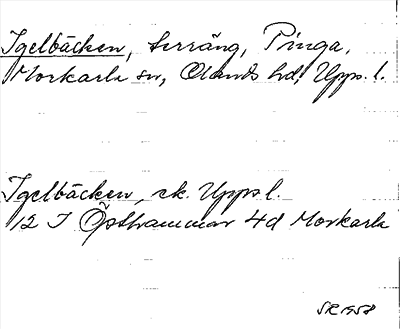 Igelbäcken, terräng, Pinga,
Morkarla sn, Olands hd, Upps. l.
Igelbäcken, ek. Upps l.
12 I Östhammar 4d Morkarla
SR 1958